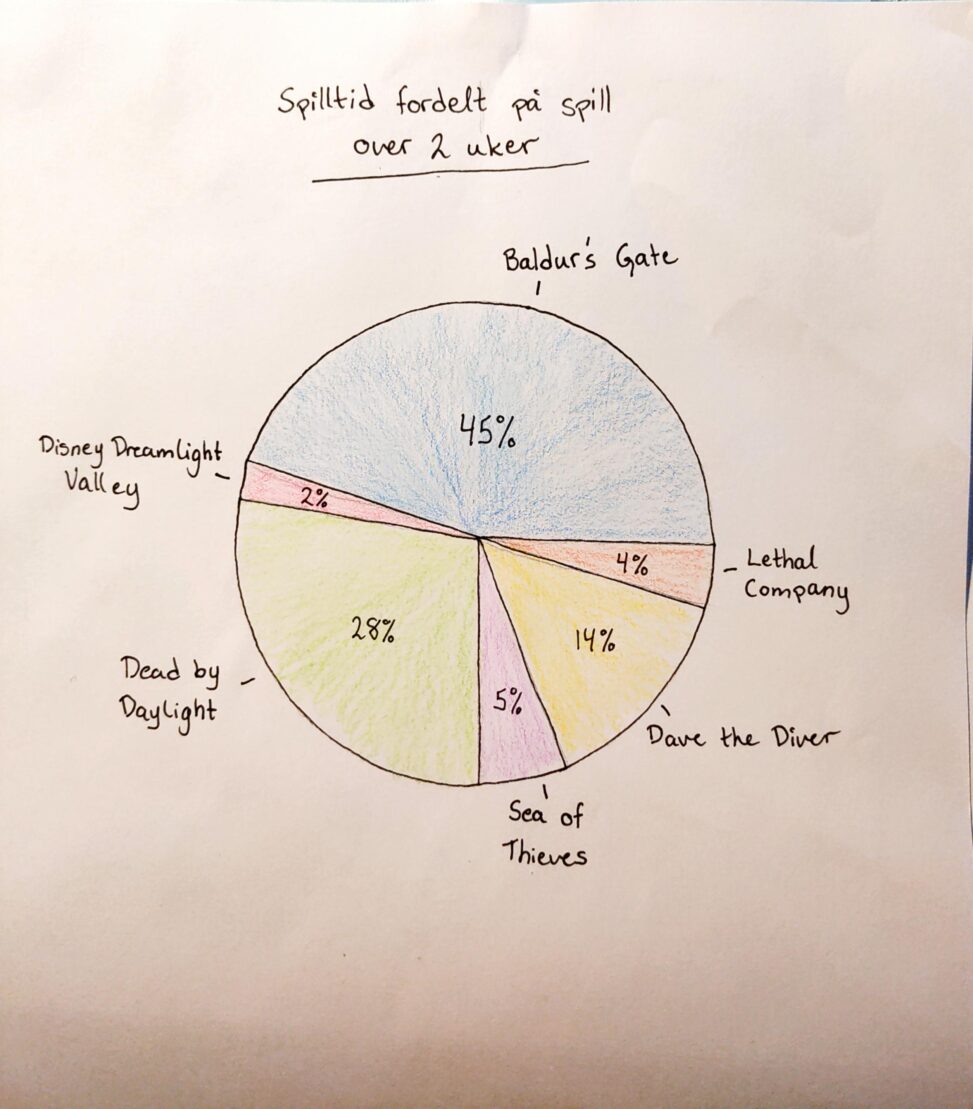 Spilltid fordelt på spill
over 2 uker
Baldur's Gate
45%
Disney Dreamlight
Valley
2%
4%
Lethal
Company
28%
14%
Dead by
Daylight
5%
Dave the Diver
Sea of
Thieves